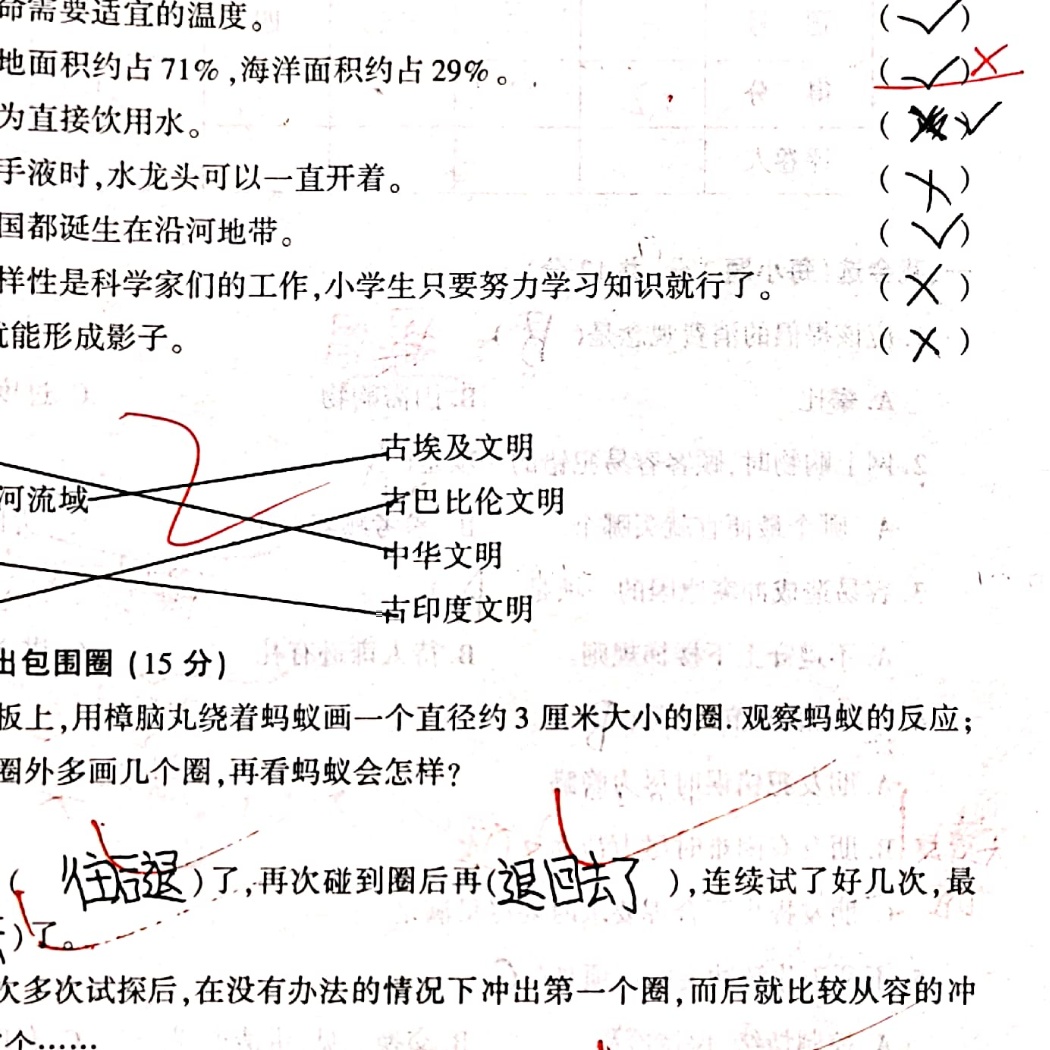 命需要适宜的温度。 (✓)
地面积约占71%,海洋面积约占29%。 (✓)×
为直接饮用水。 ( )✓
手液时,水龙头可以一直开着。 (×)
国都诞生在沿河地带。 (✓)
样性是科学家们的工作,小学生只要努力学习知识就行了。 (×)
就能形成影子。 (×)
古埃及文明
河流域
古巴比伦文明
中华文明
古印度文明
出包围圈 (15 分)
板上,用樟脑丸绕着蚂蚁画一个直径约3厘米大小的圈.观察蚂蚁的反应;
圈外多画几个圈,再看蚂蚁会怎样?
(往后退)了,再次碰到圈后再(退回去了),连续试了好几次,最
)了。
次多次试探后,在没有办法的情况下冲出第一个圈,而后就比较从容的冲
个……